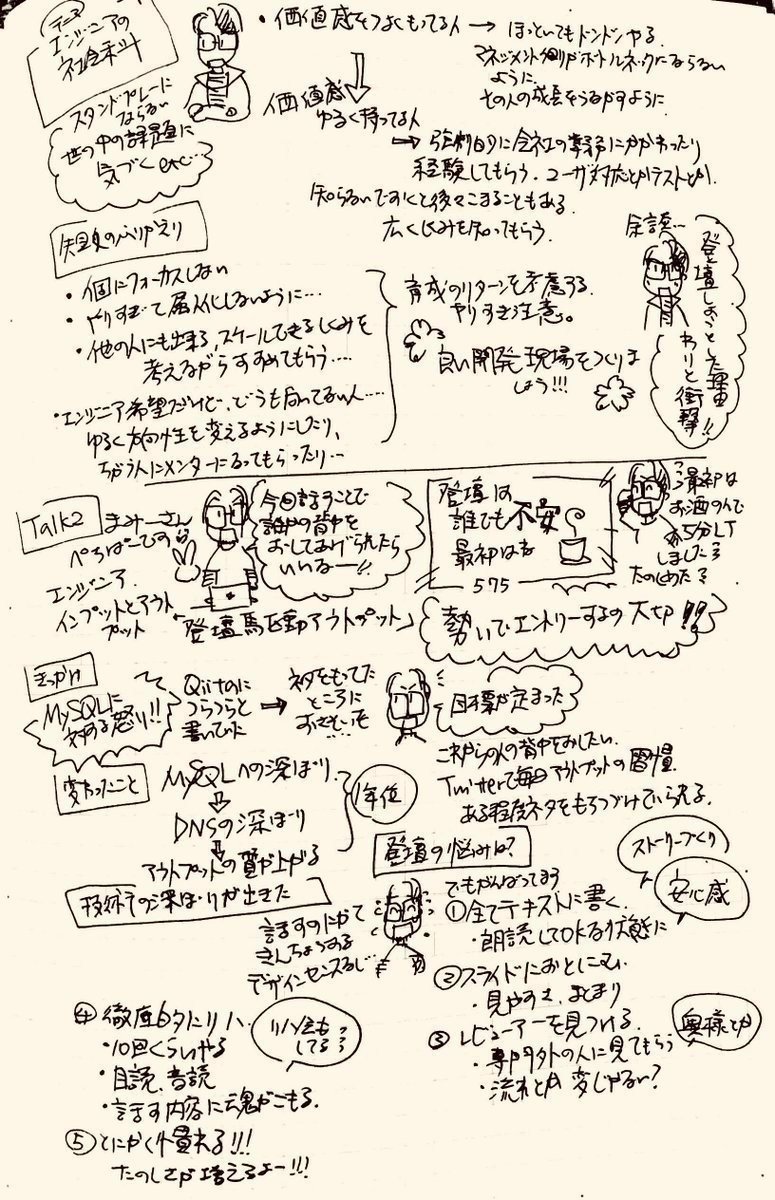 テーマ
エンジニアの
社会科
スタンドプレーに
ならない
世の中の課題に
気づく etc…
・価値感をつよくもってる人 → ほっといてもドンドンやる。
マネジメント側がボトルネックにならない
ように
その人の成長をうながすように
価値感
ゆるく持ってる人
→ 強制的に会社の業務にかかわったり
経験してもらう。ユーザ対応とかテストとか。
知らないですすむと後々こまることもある
広くしくみを知ってもらう。
ふりかえり
・個にフォーカスしない
・やりすぎて属人化しないように…
・他の人にも出来る、スケールできるしくみを
考えながらすすめてもらう…
・エンジニア希望だけど、どうも向いてない人…
ゆるく方向性を変えるようにしたり、
ちがう人にメンターになってもらったり…
育成のリターンを考慮する
やりすぎ注意。
良い開発現場をつくりま
しょう!!!
余談…
登壇しようとした理由
わりと衝撃!!
Talk2
まみーさん
ぺちぱーです
エンジニア
インプットとアウト
プット
今回話すことで
誰かの背中を
おしてあげられたら
いいなー!!
「登壇駆動アウトプット」
登壇は
誰でも不安
最初はね
575
最初は
お酒のんで
5分LT
しました
たのしめた
勢いでエントリーするの大切!!
きっかけ
MySQLに
対する怒り!!
Qiitaに
つらつらと
書いていた
→ ネタをもってた
ところに
おさそいを
……
目標が定まった
これからの人の背中をおしたい。
Twitterで毎日アウトプットの習慣
ある程度ネタをもちつづけていられる。
変わったこと
MySQLへの深ぼり
DNSの深ぼり
アウトプットの質が上がる
1年位
技術の深ぼりが出きた
登壇の悩みは?
話すのにがて
きんちょうする
デザインセンスなし…
でもがんばってます
①全てテキストに書く。
・朗読してOKな状態に
ストーリーづくり
安心感
②スライドにおとしこむ
・見やすさ、まとまり
③レビューアーを見つける。
・専門外の人に見てもらう
・流れとか変じゃない?
奥様とか
④徹底的にリハ
・10回くらいやる
・目読、音読
・話す内容に魂がこもる。
リハ会も
してる
⑤とにかく場慣れる!!!
たのしさが増えるよー!!!